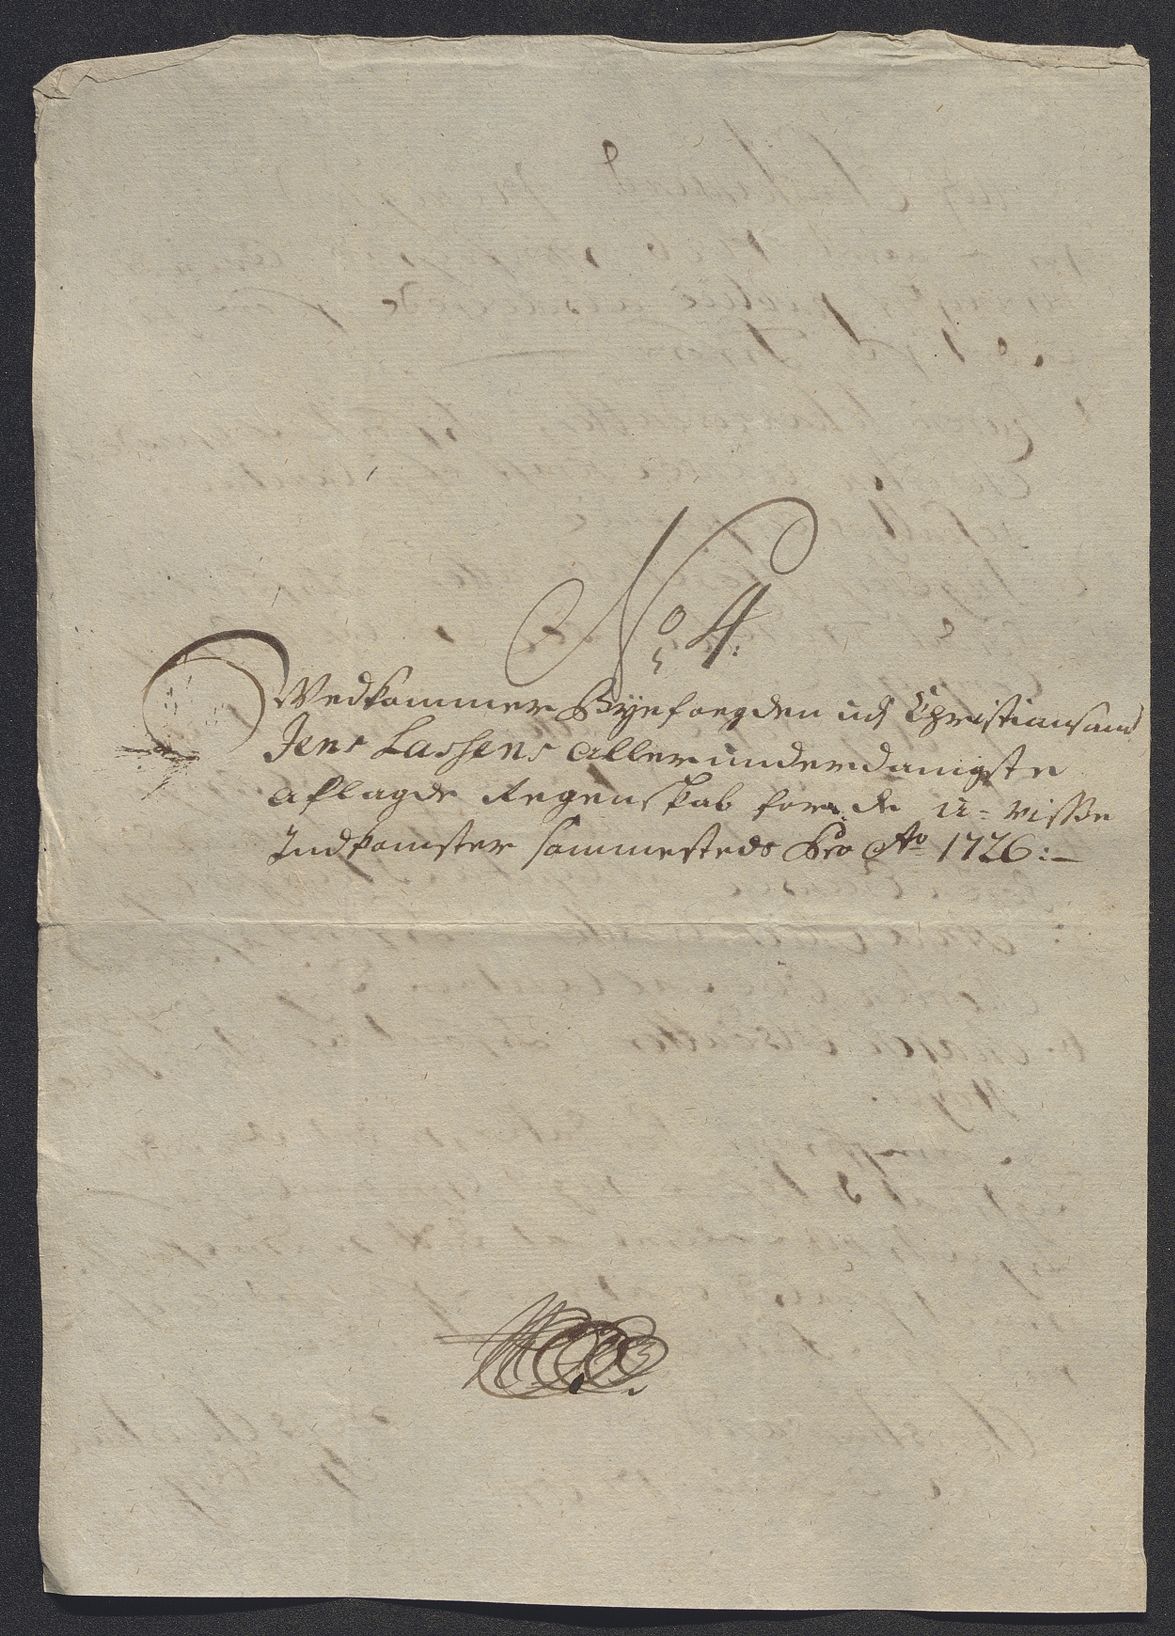 No 4:
Vedkommer Byefoegden udj Christiansand
Jens Lassens allerunderdanigste
aflagde Regenskab for de u=visse
Indkomster sammesteds Pro Ao 1726: